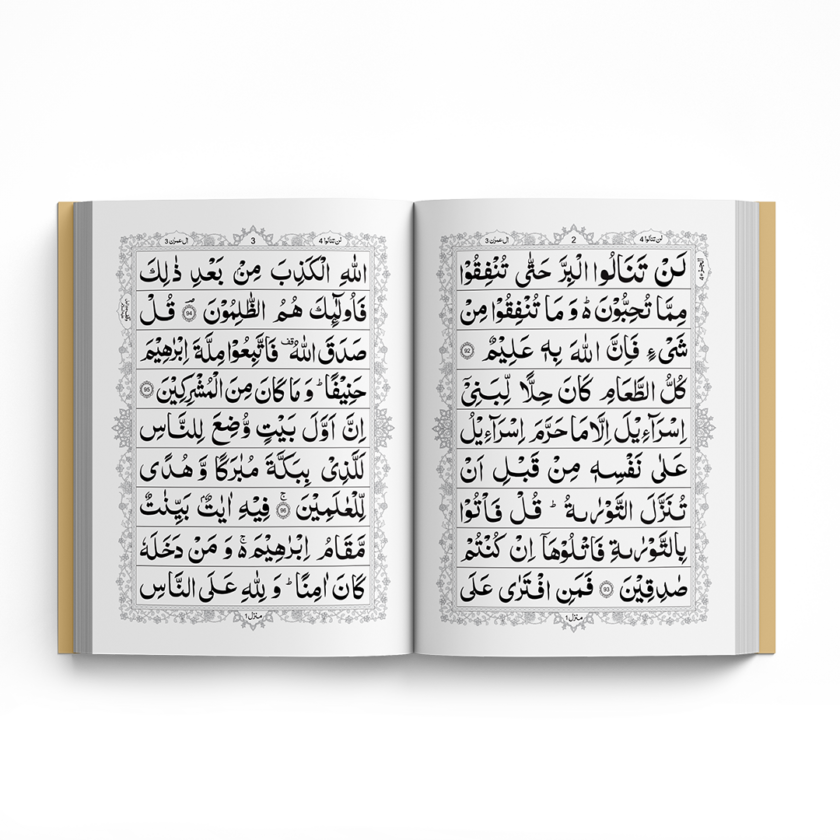 لن تنالوا 4
2
اٰل عمرٰن 3
لَنْ تَنَالُوا الْبِرَّ حَتّٰى تُنْفِقُوْا
مِمَّا تُحِبُّوْنَ ؕ۬ وَ مَا تُنْفِقُوْا مِنْ
شَیْءٍ فَاِنَّ اللّٰهَ بِهٖ عَلِیْمٌ 92
كُلُّ الطَّعَامِ كَانَ حِلًّا لِّبَنِیْۤ
اِسْرَآءِیْلَ اِلَّا مَا حَرَّمَ اِسْرَآءِیْلُ
عَلٰى نَفْسِهٖ مِنْ قَبْلِ اَنْ
تُنَزَّلَ التَّوْرٰىةُ ؕ قُلْ فَاْتُوْا
بِالتَّوْرٰىةِ فَاتْلُوْهَاۤ اِنْ كُنْتُمْ
صٰدِقِیْنَ 93 فَمَنِ افْتَرٰى عَلَى
منزل ١
لن تنالوا 4
3
اٰل عمرٰن 3
اللّٰهِ الْكَذِبَ مِنْۢ بَعْدِ ذٰلِكَ
فَاُولٰٓىِٕكَ هُمُ الظّٰلِمُوْنَ ؔ 94 قُلْ
صَدَقَ اللّٰهُ ۫ فَاتَّبِعُوْا مِلَّةَ اِبْرٰهِیْمَ
حَنِیْفًا ؕ وَ مَا كَانَ مِنَ الْمُشْرِكِیْنَ 95
اِنَّ اَوَّلَ بَیْتٍ وُّضِعَ لِلنَّاسِ
لَلَّذِیْ بِبَكَّةَ مُبٰرَكًا وَّ هُدًى
لِّلْعٰلَمِیْنَ ۚ 96 فِیْهِ اٰیٰتٌۢ بَیِّنٰتٌ
مَّقَامُ اِبْرٰهِیْمَ ۚ۬ وَ مَنْ دَخَلَهٗ
كَانَ اٰمِنًا ؕ وَ لِلّٰهِ عَلَى النَّاسِ
منزل ١